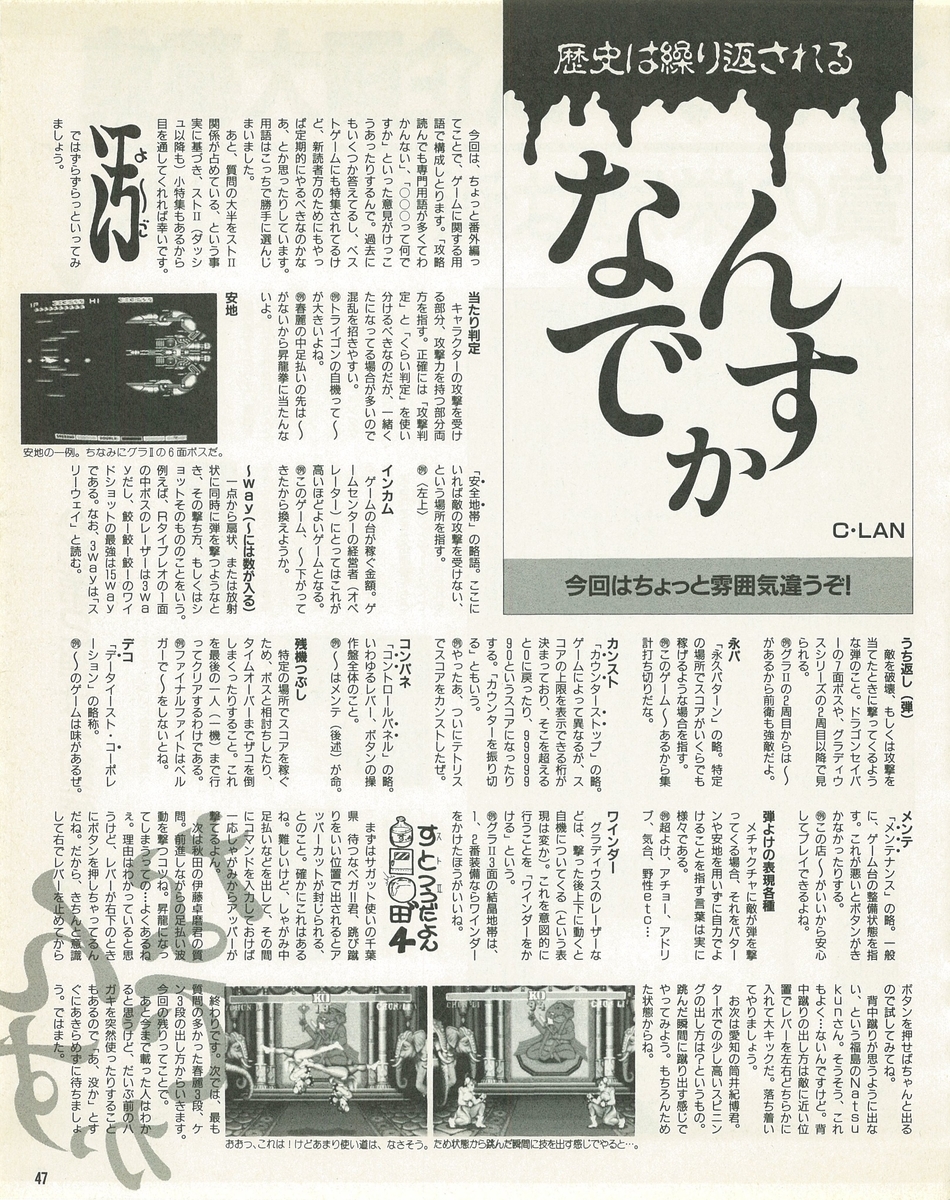 歴史は繰り返される
なんですか
C・LAN
今回はちょっと雰囲気違うぞ!
今回は、ちょっと番外編っ
てことで、ゲームに関する用
語で構成しとります。「攻略
読んでも専門用語が多くてわ
かんない」、「○○○って何で
すか」といった意見がけっこ
うあったりするんで。過去に
もいくつか答えてるし、ベス
トゲームにも特集されてるけ
ど、新読者方のためにもやっ
ぱ定期的にやるべきなのかな
あ、とか思ったりしています。
用語はこっちで勝手に選んじ
まいました。
あと、質問の大半をストⅡ
関係が占めている、という事
実に基づき、ストⅡ(ダッシ
ュ以降も)小特集もあるから
目を通してくれれば幸いです。
ではずらずらっといってみ
ましょう。
よ〜ご
当たり判定
キャラクターの攻撃を受け
る部分、攻撃力を持つ部分両
方を指す。正確には「攻撃判
定」と「くらい判定」を使い
分けるべきなのだが、一緒く
たになってる場合が多いので
混乱を招きやすい。
例トライゴンの自機って〜
が大きいよね。
例春麗の中足払いの先は〜
がないから昇龍拳に当たんな
いよ。
安地
安地の一例。ちなみにグラⅡの6面ボスだ。
「安全地帯」の略語。ここに
いれば敵の攻撃を受けない、
という場所を指す。
例〈左上〉
インカム
ゲームの台が稼ぐ金額。ゲ
ームセンターの経営者(オペ
レーター)にとってはこれが
高いほどよいゲームとなる。
例このゲーム、〜下がって
きたから換えようか。
〜way(〜には数が入る)
一点から扇状、または放射
状に同時に弾を撃つようなと
き、その撃ち方、もしくはシ
ョットそのもののことをいう。
例えば、Rタイプレオの1面
の中ボスのレーザーは3wa
yだし、鮫!鮫!鮫!のワイ
ドショットの最強は15way
である。なお、3wayは「ス
リーウェイ」と読む。
うち返し(弾)
敵を破壊、もしくは攻撃を
当てたときに撃ってくるよう
な弾のこと。ドラゴンセイバ
ーの7面ボスや、グラディウ
スシリーズの2周目以降で見
られる。
例グラⅡの2周目からは〜
があるから前衛も強敵だよ。
永パ
「永久パターン」の略。特定
の場所でスコアがいくらでも
稼げるような場合を指す。
例このゲーム〜あるから集
計打ち切りだな。
カンスト
「カウンターストップ」の略。
ゲームによって異なるが、ス
コアの上限を表示できる桁が
決まっており、そこを超える
と0に戻ったり、99999
90というスコアになったり
する。「カウンターを振り切
る」ともいう。
例やったあ、ついにテトリス
でスコアをカンストしたぜ。
コンパネ
「コントロールパネル」の略。
いわゆるレバー、ボタンの操
作盤全体のこと。
例〜はメンテ(後述)が命。
残機つぶし
特定の場所でスコアを稼ぐ
ため、ボスと相討ちしたり、
タイムオーバーまでザコを倒
しまくったりすること。これ
を最後の一人(一機)まで行
ってクリアするわけである。
例ファイナルファイトはベル
ガーで〜をしないとね。
デコ
「データイースト・コーポレ
ーション」の略称。
例〜のゲームは味があるぜ。
メンテ
「メンテナンス」の略。一般
に、ゲーム台の整備状態を指
す。これが悪いとボタンがき
かなかったりする。
例この店〜がいいから安心
してプレイできるよね。
弾よけの表現各種
メチャクチャに敵が弾を撃
ってくる場合、それをパター
ンや安地を用いずに自力でよ
けることを指す言葉は実に
様々である。
例超よけ、アチョー、アドリ
ブ、気合、野性etc…
ワインダー
グラディウスのレーザーな
どは、撃った後上下に動くと
自機についてくる(という表
現は変か)。これを意図的に
行うことを「ワインダーをか
ける」という。
例グラⅡ3面の結晶地帯は、
1、2番装備ならワインダー
をかけたほうがいいね。
すとつうだよん
ストⅡ
4
まずはサガット使いの千葉
県 待つなべガー君、跳び蹴
りをいい位置で出されるとア
ッパーカットが封じられる、
とのこと。確かにこれはある
ね。難しいけど、しゃがみ中
足払いなどを出して、その間
にコマンドを入力しておけば
一応しゃがみからアッパーが
撃てるよん。
次は秋田の伊藤卓磨君の質
問。前進しながらの足払い波
動を撃つコツね。昇龍になっ
てしまうっての…よくあるね
え。理由はわかっていると思
うけど、レバーが右下のとき
にボタンを押しちゃってるん
だね。だから、きちんと意識
して右でレバーを止めてから
ボタンを押せばちゃんと出る
ので試してみてね。
背中蹴りが思うように出な
い、という福島のNatsu
kunさん。そうそう、これ
もよく…ないんですけど。背
中蹴りの出し方は敵に近い位
置でレバーを左右どちらかに
入れて大キックだ。落ち着い
てやりましょう。
お次は愛知の筒井紀博君。
ターボでの少し高いスピニン
グの出し方は?というもの。
跳んだ瞬間に蹴り出す感じで
やってみよう。もちろんため
た状態からね。
ため状態から跳んだ瞬間に技を出す感じでやると…。
おおっ、これは!けどあまり使い道は、なさそう。
終わりです。次では、最も
質問の多かった春麗3段、ケ
ン3段の出し方からいきます。
今回の残りってことで。
あと今まで載った人はわか
ると思うけど、だいぶ前のハ
ガキを突然使ったりすること
もあるので「あ、没か」とす
ぐにあきらめずに待ちましょ
う。ではまた。
47